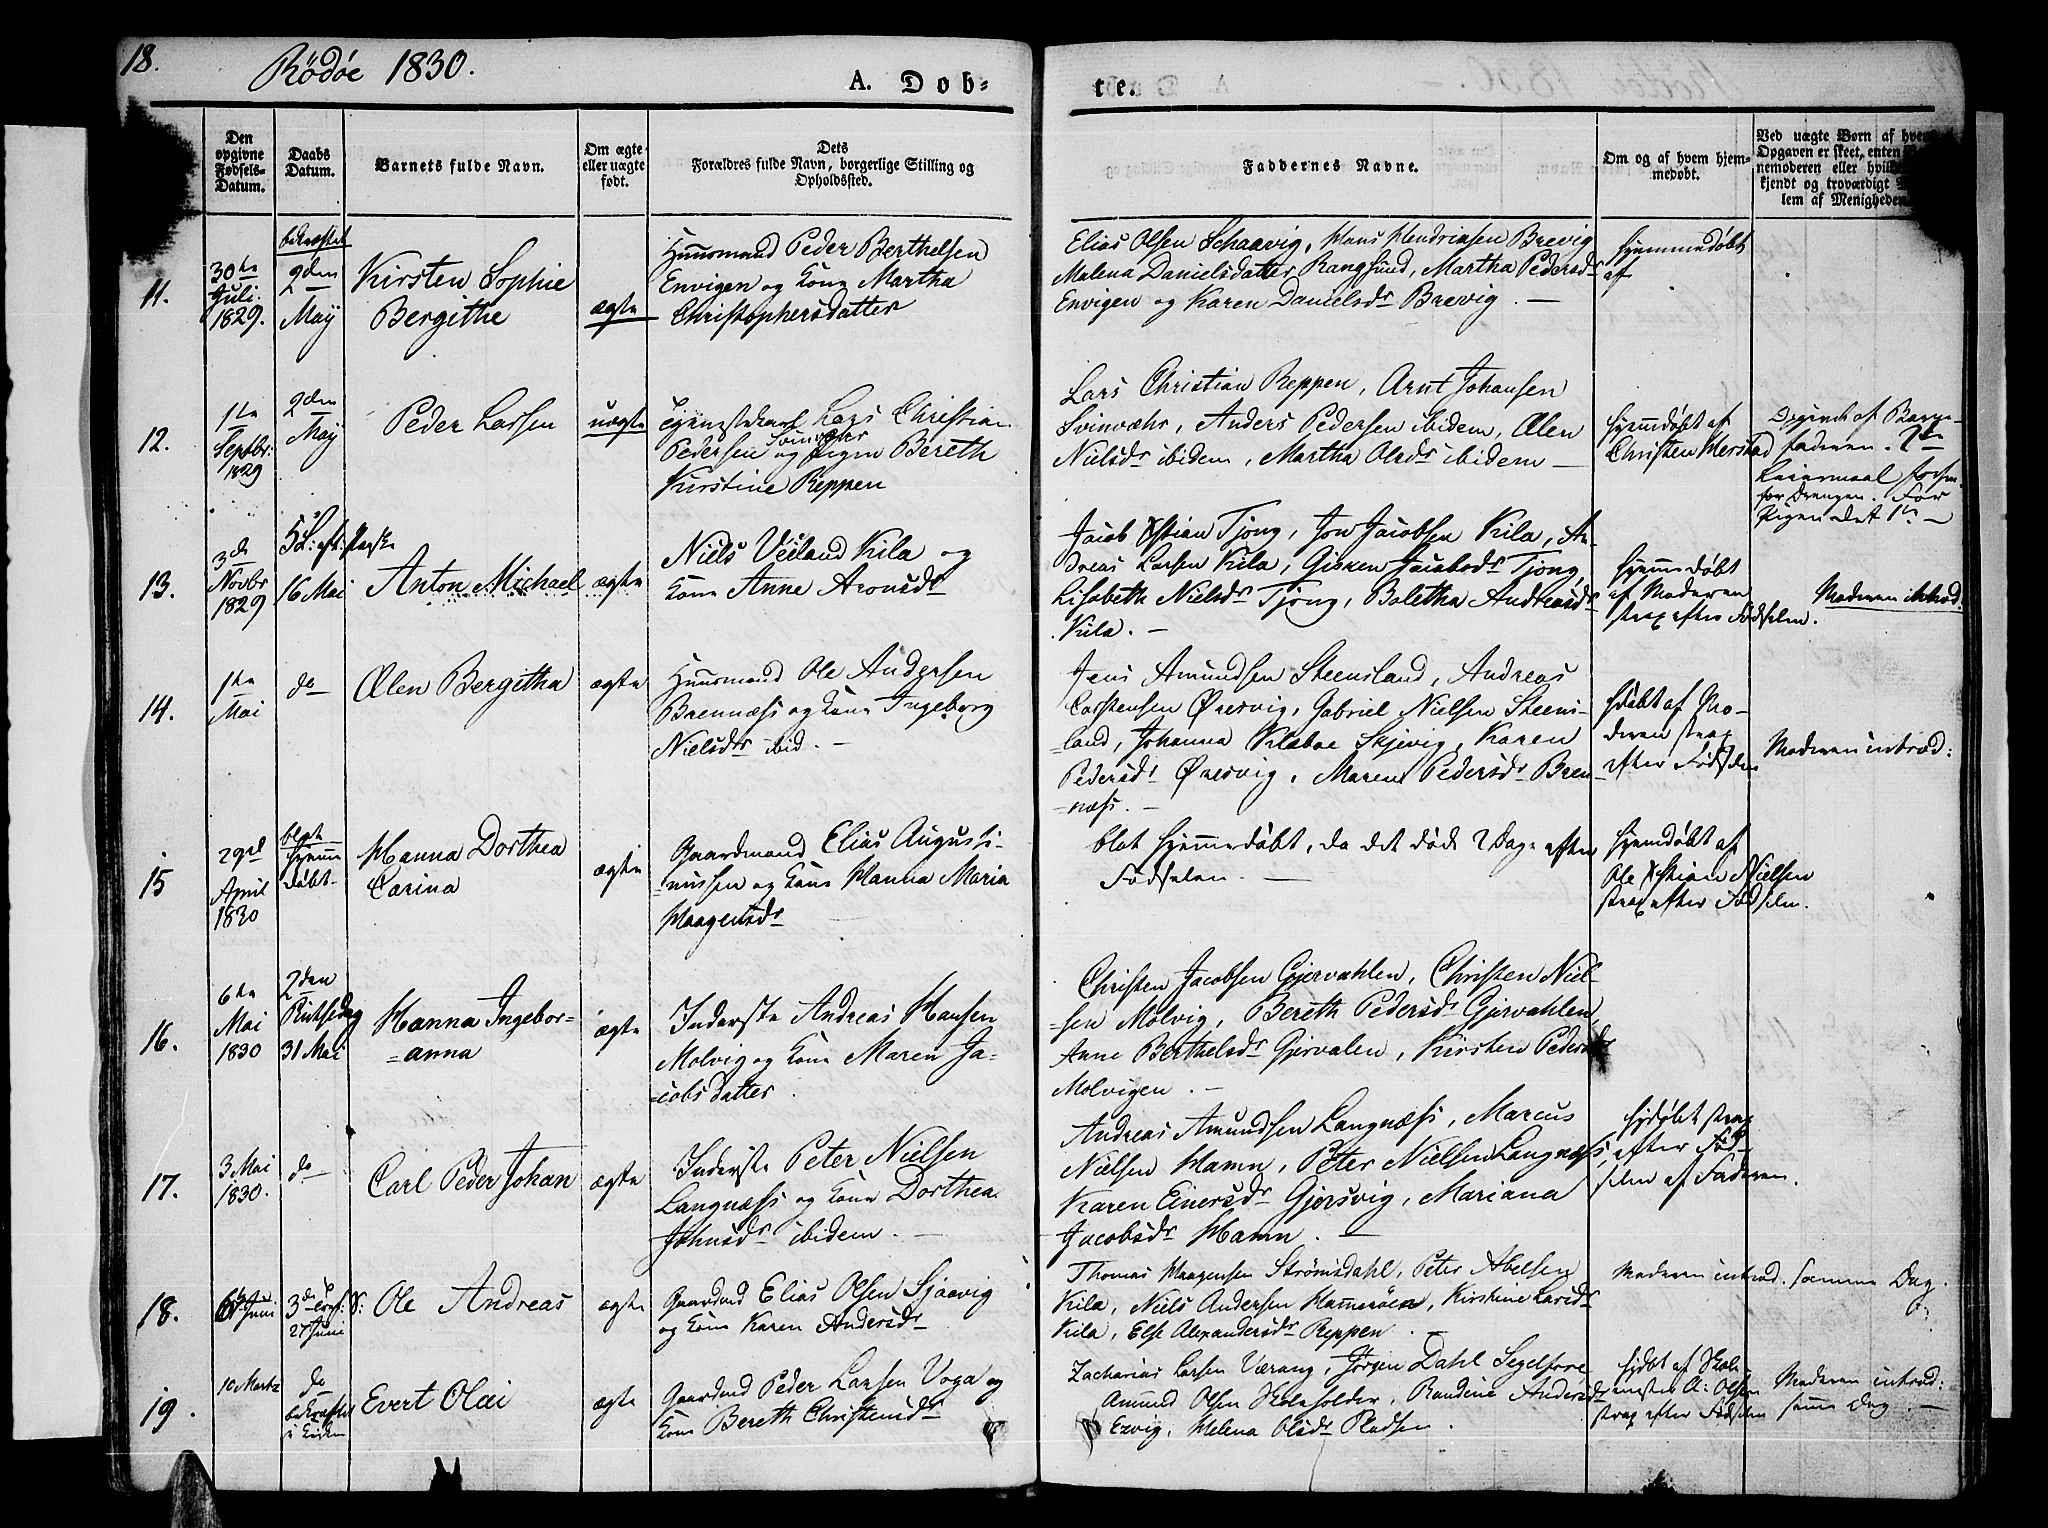 18.
Rödöe 1830.
A. Døb-
te.
Den opgivne Fødsels-Datum.
Daabs Datum.
Barnets fulde Navn.
Om ægte eller uægte født.
Dets
Forældres fulde Navn, borgerlige Stilling og
Opholdssted.
Faddernes Navne.
Om og af hvem hjem-
medøbt.
Ved uægte Børn af hvem
Opgaven er skeet, enten
nemoderen eller hvil
kjendt og troværdigt
lem af Menigheden
11.
30te
Juli
1829.
bekræftet
2den
May
Kirsten Sophie
Bergithe
ægte
Huusmand Peder Berthelsen
Envigen og Kone Martha
Christophersdatter
Elias Olsen Schaavig, Hans Hendriksen Brevig
Malena Danielsdatter Rangsund, Martha Pedersdr
Envigen og Karen Danielsdr Brevig. —
Hjemmedøbt
af
12.
1te
Septbr:
1829
2den
May
Peder Larsen
uægte
Lars Christian
Pedersen Svinvær og Pigen Bereth
Kirstine Reppen
Lars Christian Reppen, Arnt Johansen
Svinvæhr, Anders Pedersen ibidem, Ælen
Nielsdr ibidem, Martha Olsdr ibidem —
Hjemdøbt af
Christen Merstad
Opgivet af Barne-
faderen. 2de
Leiermaal
for Drengen. For
Pigen det 1te —
13.
3de
Novbr
1829
5 S: eft: Paaske
16 Mai
Anton Michael
ægte
Niels Veiland Kila og
Kone Anne Aronsdr
Jacob Xstian Tjong, Jon Jacobsen Kila, An-
dreas Larsen Kila, Gisken Jacobsdr Tjong,
Lisabeth Nielsdr Tjong, Boletha Andreasdr
Kila. —
Hjemmedøbt
af Moderen
strax efter Fødselen.
Moderen introd.
14.
1te
Mai
do
Ælen Bergitha
ægte
Huusmand Ole Andersen
Brennæss og Kone Ingeborg
Nielsdr ibid. —
Jens Amundsen Steensland, Andreas
Carstensen Øresvig, Gabriel Nielsen Steens-
land, Johanna Kildboe Skjevig, Karen
Pedersdr Øresvig, Maren Pedersdr Bren-
næss. —
Hdøbt af Mo-
deren strax
efter Fødselen
Moderen introd:
15
29de
April
1830
blot
hjemme
døbt
Hanna Dorthea
Carina
ægte
Gaardmand Elias Augusti-
nussen og Kone Hanna Maria
Haagensdr
blot hjemmedøbt, da det døde 2 Dage efter
Fødselen. —
Hjemdøbt af
Ole Xstian Nielsen
strax efter Fødselen.
16.
6te
Mai
1830
2den
Pintsedag
31 Mai
Hanna Ingebor-
=anna
ægte
Inderste Andreas Hansen
Molvig og Kone Maren Ja-
cobsdatter.
Christen Jacobsen Gjervahlen, Christen Niel-
sen Molvig, Bereth Pedersdr Gjervahlen,
Anne Berthelsdr Gjervalen, Kirsten Pedersdr
Molvigen. —
17.
3 Mai
1830.
do
Carl Peder Johan
ægte
Inderste Peter Nielsen
Langnæss og Kone Dorthea
Johnsdr ibidem. —
Andreas Amundsen Langnæss, Marcus
Nielsen Hamn, Peter Nielsen Langnæss,
Karen Einersdr Gjersvig, Mariana
Jacobsdr Hamn. —
Hjdøbt strax
efter Fød-
selen af Faderen.
18.
Juni
3de
27 Juni
Ole Andreas
ægte
Gaardmd Elias Olsen Sjaavig
og Kone Karen Andersdr
Thomas Haagensen Strömsdahl, Peter Abelsen
Kila, Niels Andersen Hammeröen, Kirstine Larsdr
Kila, Else Alexandersdr Reppen. —
Moderen introd. samme Dag.
19.
10 Marts
do
bekræftet
i Kirken
Evert Olai
ægte
Gaardmd Peder Larsen Voga og
Kone Bereth Christensdr
Zacharias Larsen Værang, Jörgen Dahl Segelfore
Amund Olsen Skoleholder, Randine Andersdr
Exvig, Helena Olsdr Pladsen.
Hjdøbt af Skole-
A: Olsen
strax efter Fødselen
Moderen introd:
samme Dag. —